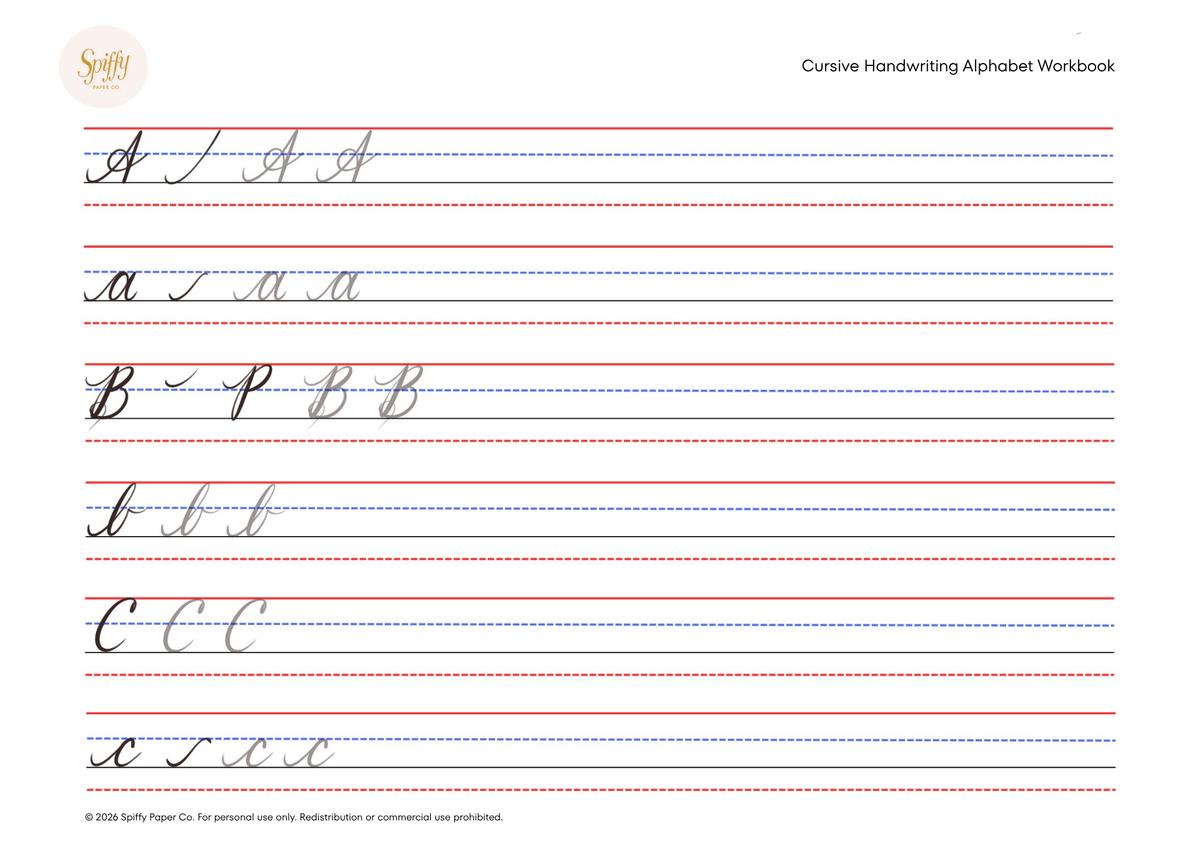 Spiffy
PAPER CO.
Cursive Handwriting Alphabet Workbook
A A A
a a a
B P B B
b b b
C C C
c c c
© 2026 Spiffy Paper Co. For personal use only. Redistribution or commercial use prohibited.